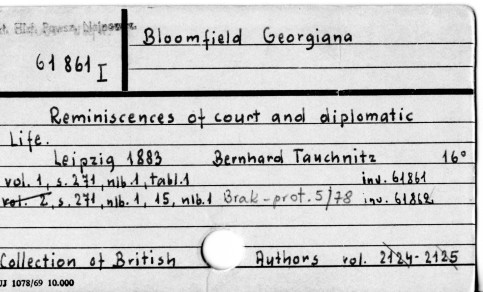 Bloomfield Georgiana
61861 I
Reminiscences of court and diplomatic
Life.
Leipzig 1883 Bernhard Tauchnitz 16°
vol. 1, s. 271, nlb. 1, tabl. 1 inv. 61861
vol. 2, s. 271, nlb. 1, 15, nlb. 1 Brak-prot. 5/78 inv. 61862
Collection of British Authors vol. 2124-2125
UJ 1078/69 10.000